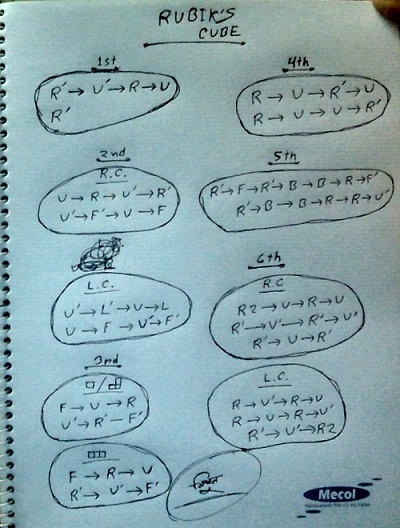 RUBIK'S
CUBE
1st
R' → U' → R → U
R'
2nd
R.C.
U → R → U' → R'
U' → F' → U → F
L.C.
U' → L' → U → L
U → F → U' → F'
3rd
F → U → R
U' → R' – F'
F → R → U
R' → U' → F'
4th
R → U → R' → U
R → U → U → R'
5th
R' → F → R' → B → B → R → F'
R' → B → B → R → R → U'
6th
RC
R2 → U → R → U
R' → U' → R' → U'
R' → U → R'
L.C.
R → U' → R → U
R → U → R → U'
R' → U' → R2
Mecol